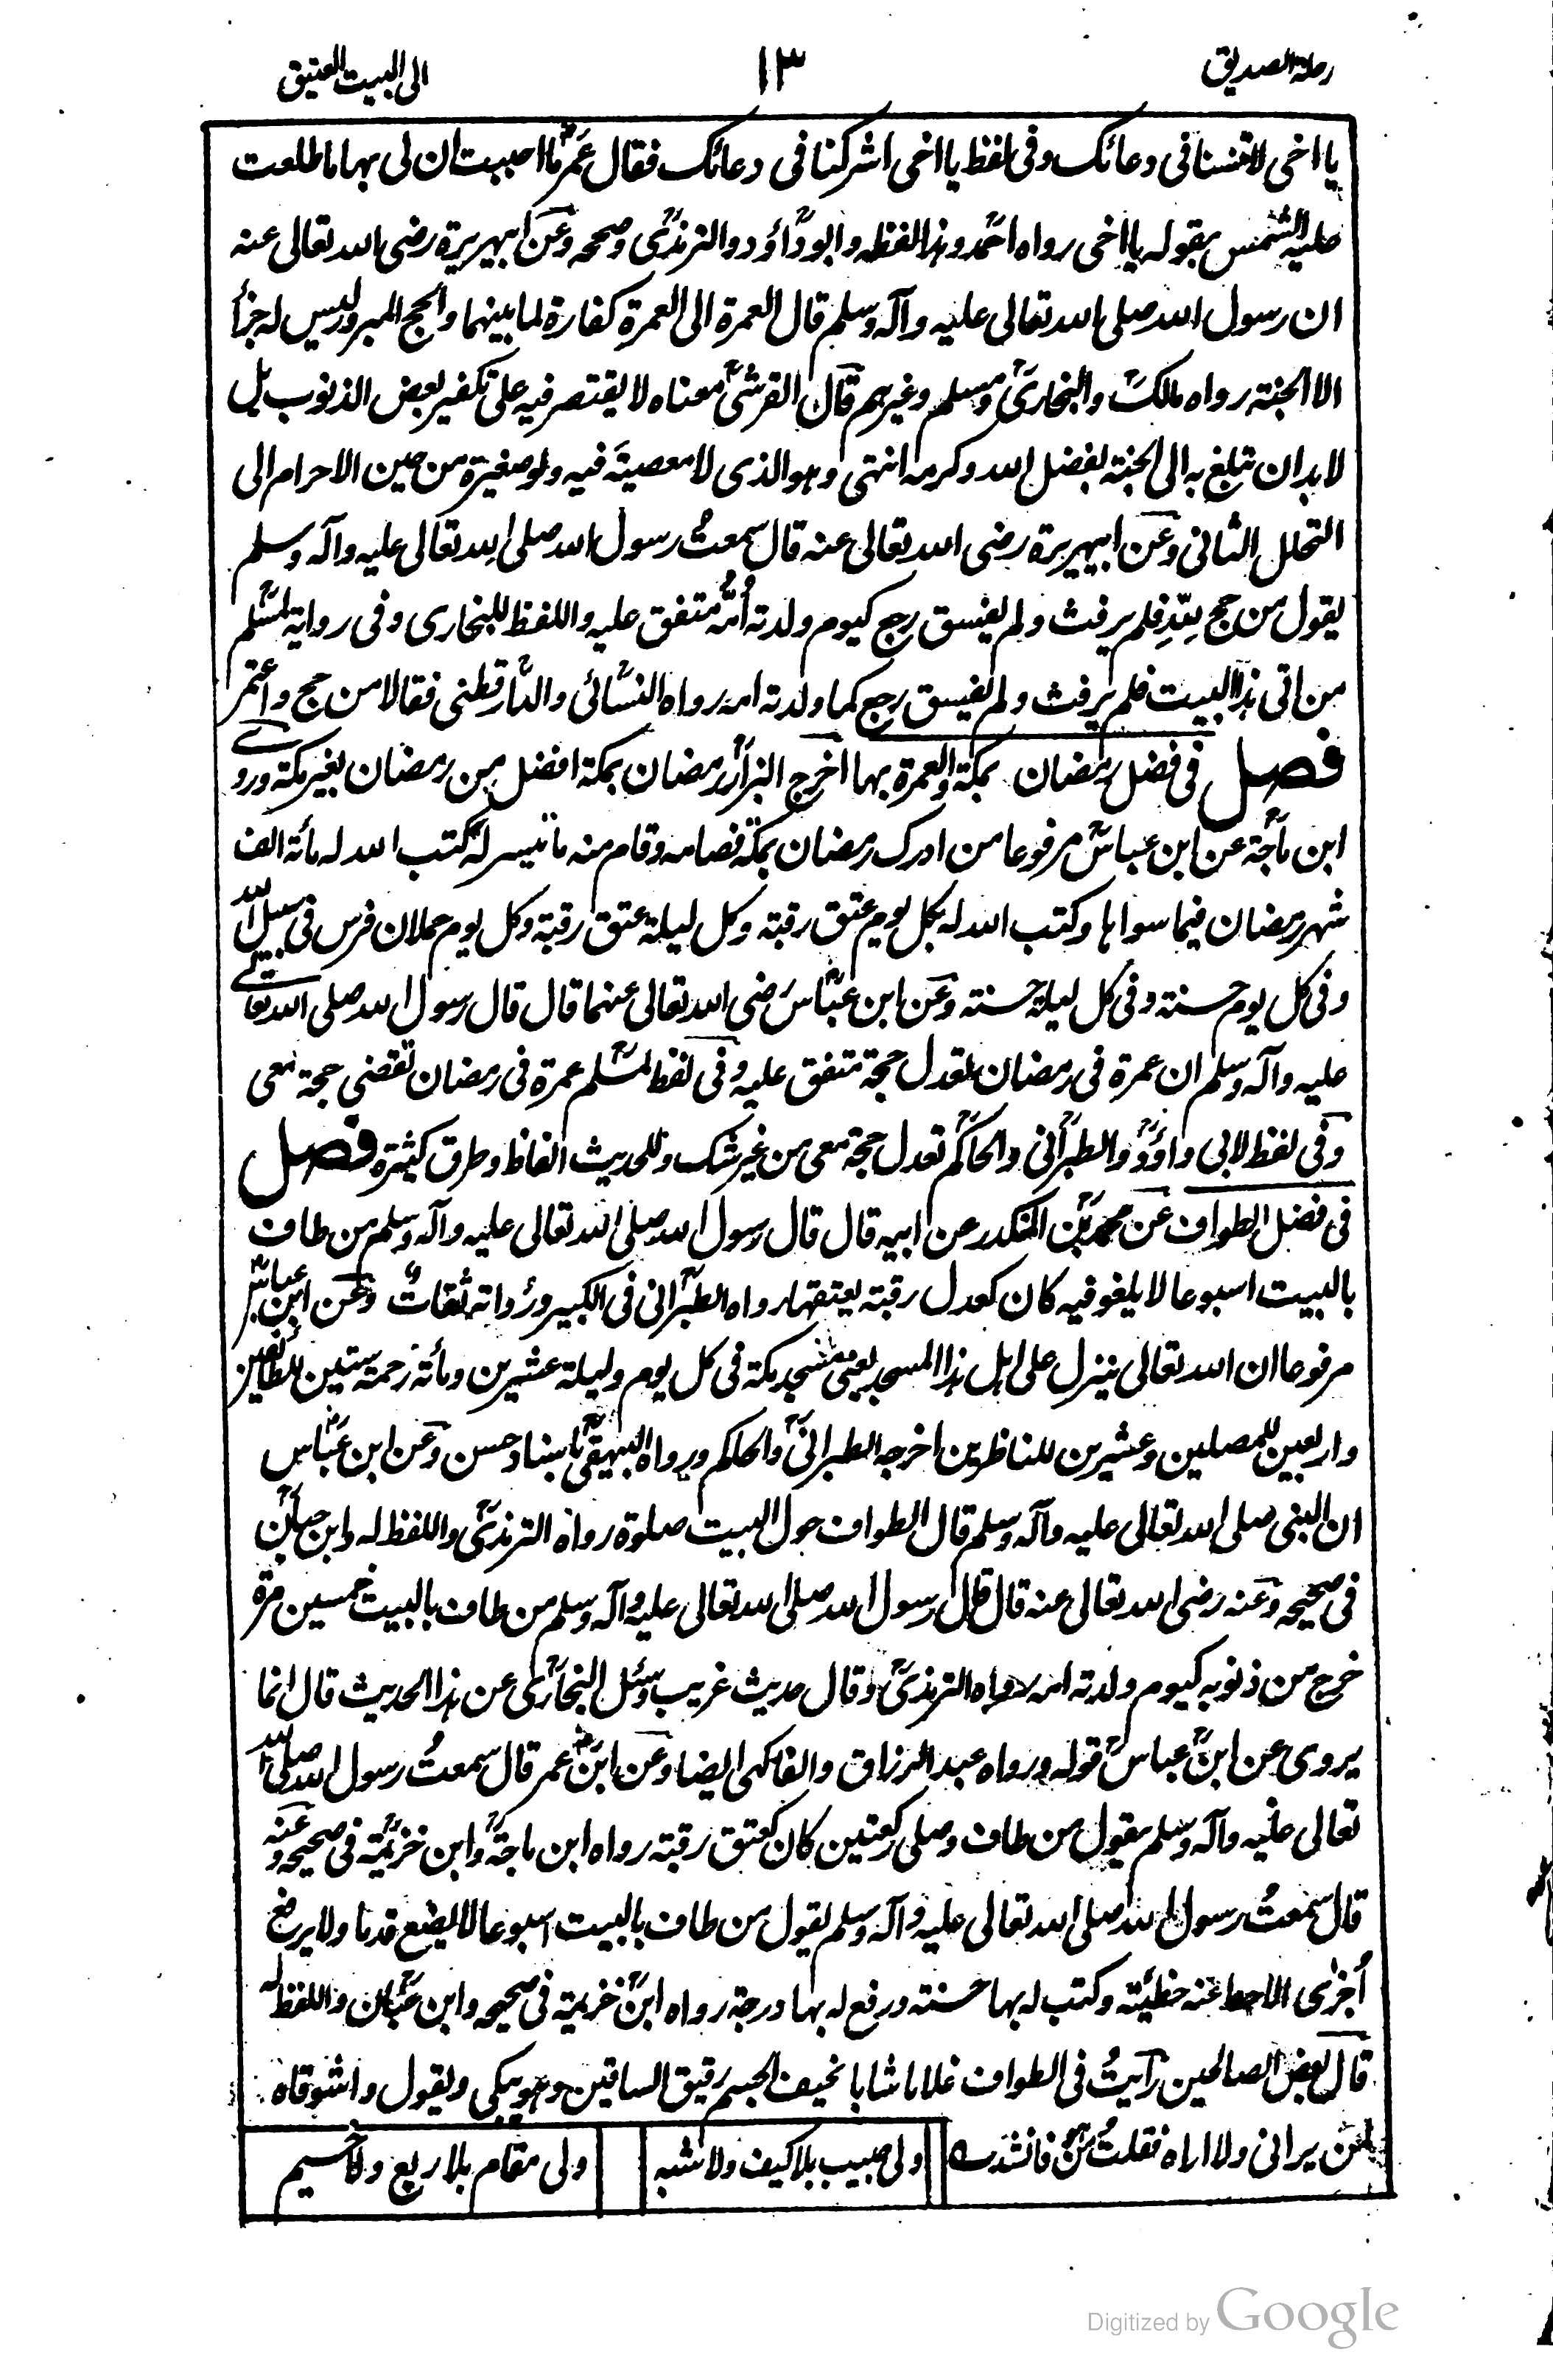 رحلة الصديق
١٣
الى البيت العتيق
يا اخى لا تنسنا فى دعائك وفى لفظ يا اخى اشركنا فى دعائك فقال عمر ما احببت ان لى بها ما طلعت
عليه الشمس بقوله يا اخى رواه احمد وهذا لفظه وابو داؤد والترمذى وصححه وعن ابيهريرة رضى الله تعالى عنه
ان رسول الله صلى الله تعالى عليه وآله وسلم قال العمرة الى العمرة كفارة لما بينهما والحج المبرور ليس له جزأ
الا الجنة رواه مالك والبخارى ومسلم وغيرهم قال القرشى معناه لا يقتصر فيه على تكفير بعض الذنوب بل
لا بد ان تبلغ به الى الجنة بفضل الله وكرمه انتهى وهو الذى لا معصية فيه ولو صغيرة من حين الاحرام الى
التحلل الثانى وعن ابيهريرة رضى الله تعالى عنه قال سمعتُ رسول الله صلى الله تعالى عليه وآله وسلم
يقول من حج للهِ فلم يرفث ولم يفسق رجع كيوم ولدته أُمُّه متفق عليه واللفظ للبخارى وفى رواية لمسلم
من اتى هذا البيت فلم يرفث ولم يفسق رجع كما ولدته امه رواه النسائى والدارقطنى فقالا من حج واعتمر
فصل فى فضل رمضان بمكة والعمرة بها اخرج البزار رمضان بمكة افضل من رمضان بغير مكة وروى
ابن ماجة عن ابن عباس مرفوعا من ادرك رمضان بمكة فصامه وقام منه ما تيسر له كتب الله له مائة الف
شهر رمضان فيما سواها وكتب الله له بكل يوم عتق رقبة وكل ليلة عتق رقبة وكل يوم حملان فرس فى سبيل الله
وفى كل يوم حسنة وفى كل ليلة حسنة وعن ابن عباس رضى الله تعالى عنهما قال قال رسول الله صلى الله تعالى
عليه وآله وسلم ان عمرة فى رمضان تعدل حجة متفق عليه وفى لفظ لمسلم عمرة فى رمضان تقضى حجة معى
وفى لفظ لابى داؤد والطبرانى والحاكم تعدل حجة معى من غير شك وللحديث الفاظ وطرق كثيرة فصل
فى فضل الطواف عن محمد بن المنكدر عن ابيه قال قال رسول الله صلى الله تعالى عليه وآله وسلم من طاف
بالبيت اسبوعا لا يلغو فيه كان كعدل رقبة يعتقها رواه الطبرانى فى الكبير ورُواته ثقاتٌ وعن ابن عباس
مرفوعا ان الله تعالى ينزل على اهل هذا المسجد يعنى مسجد مكة فى كل يوم وليلة عشرين ومأئة رحمة ستين للطائفين
واربعين للمصلين وعشرين للناظرين اخرجه الطبرانى والحاكم ورواه البيهقى باسناد حسن وعن ابن عباس
ان النبى صلى الله تعالى عليه وآله وسلم قال الطواف حول البيت صلوة رواه الترمذى واللفظ له وابن حبان
فى صحيحه وعنه رضى الله تعالى عنه قال قال رسول الله صلى الله تعالى عليه وآله وسلم من طاف بالبيت خمسين مرة
خرج من ذنوبه كيوم ولدته امه رواه الترمذى وقال حديث غريب وسئل البخارى عن هذا الحديث قال انما
يروى عن ابن عباس قوله ورواه عبد الرزاق والفاكهى ايضا وعن ابن عمر قال سمعتُ رسول الله صلى الله
تعالى عليه وآله وسلم يقول من طاف وصلى ركعتين كان كعتق رقبة رواه ابن ماجة وابن خزيمة فى صحيحه وعنه
قال سمعتُ رسول الله صلى الله تعالى عليه وآله وسلم يقول من طاف بالبيت اسبوعا لا يضع قدما ولا يرفع
أُخرٰى الا حط عنه خطيئة وكتب له بها حسنة ورفع له بها درجة رواه ابن خزيمة فى صحيحه وابن حبان واللفظ له
قال بعض الصالحين رأيتُ فى الطواف غلاما شابا نحيف الجسم رقيق الساقين وهو يبكى ويقول واشوقاه
لمن يرانى ولا اراه فقلتُ من فانشد ولى حبيب بلا كيف ولا شبه ولى مقام بلا ربع ولا خيم
Digitized by Google